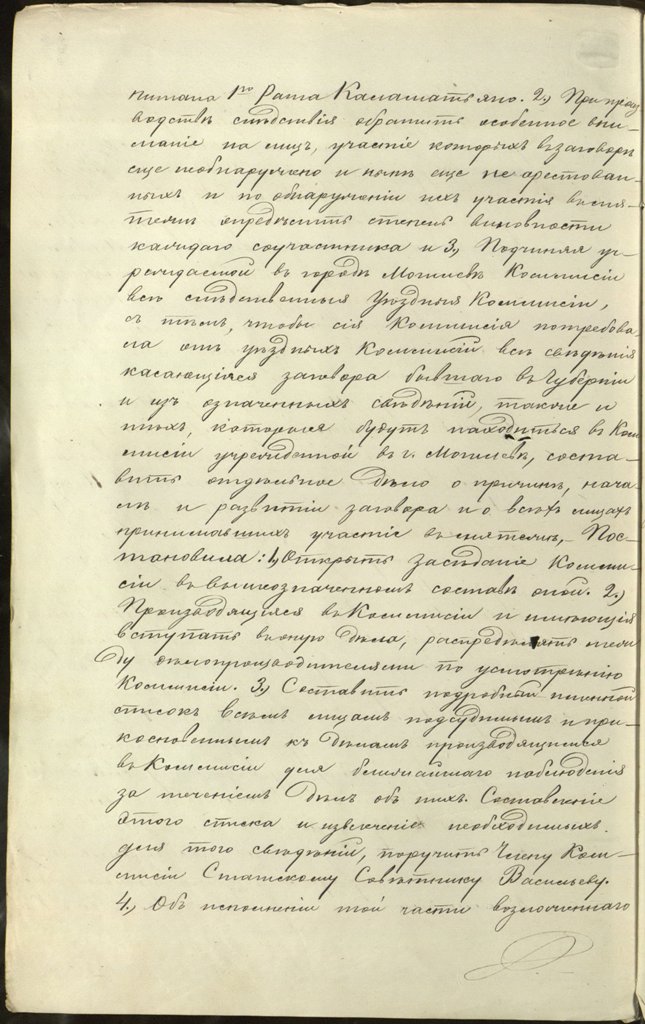 питана 1го Рата Каламатьяно. 2.) При произ
водстве следствія обратить особенное вни-
маніе на лицъ, участіе которыхъ въ заговорѣ
еще необнаружено и нынѣ еще не арестован-
ныхъ и по обнаруженіи ихъ участія въ мя-
тежѣ определить степень виновности
каждаго соучастника и 3.) Подчиняя уч-
реждаемой въ городѣ Могилевѣ Коммисіи
всѣ следственныя Уѣздныя Коммисіи,
съ тѣмъ, чтобы сія Коммисія потребова-
ла отъ уѣздныхъ Коммисій всѣ свѣденія
касающіяся заговора бывшаго въ Губерніи
и изъ означенныхъ свѣденій, также и
тѣхъ, которыя будутъ находиться въ Ком-
мисіи учрежденной въ г. Могилевѣ, соста-
вить отдѣльное Дѣло о причинѣ, нача-
лѣ и развитіи заговора и о всѣхъ лицахъ
принимавшихъ участіе въ мятежѣ, Пос-
тановила: 1.) Открыть заседаніе Комми-
сіи въ вышеозначенномъ составѣ оной. 2.)
Производящіяся въ Коммисіи и имеющія
вступать въ оную дѣла, распредѣлять меж-
ду дѣлопроизводителями по усмотренію
Коммисіи. 3.) Составить подробный именной
списокъ всѣмъ лицамъ подсудимымъ и при-
косновеннымъ къ Дѣламъ производящимся
въ Коммисіи для ближайшаго наблюденія
за теченіемъ Дѣлъ объ нихъ. Составленіе
этого списка и извлеченіе необходимыхъ
для того свѣденій, поручить Члену Ком-
мисіи Статскому Совѣтнику Васильеву.
4.) Объ исполненіи той части возложеннаго